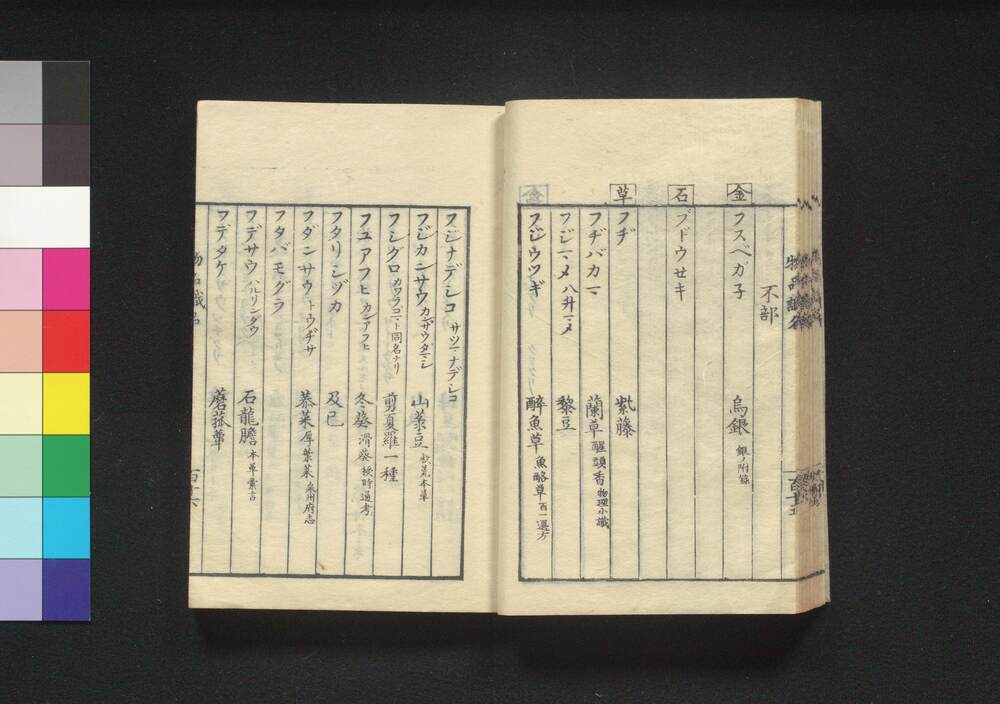 不部
金
フスベガ子 烏銀 銀ノ附録
石
ブドウセキ
草
フヂ 紫藤
フヂバカマ 蘭草 醒頭香 物理小識
フジマメ 八升マメ 黎豆
フジウツギ 醉魚草 魚酪草 百一選方
フジナデシコ サツマナデシコ
フジカンサウ カンザウダマシ 山菉豆 救荒本草
フシグロ カワラゴマト同名ナリ 剪夏羅一種
フユアフヒ カンアフヒ 冬葵 滑葵 救時通考
フタリシヅカ 及已
フダンサウ トウヂサ 菾菜 厚葉菜
フタバモグラ
フデサウ ハルリンダウ 石龍膽 本草彙言
フデタケ 蘑菰蕈
物品識名
百十六